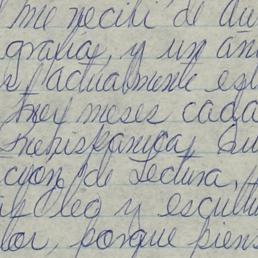 me recibí de au
grafia, y un añ
s actualmente est
trey meses cada
nehispánica, au
ción de Lectura,
ay leo y escultu
lor, porque piens